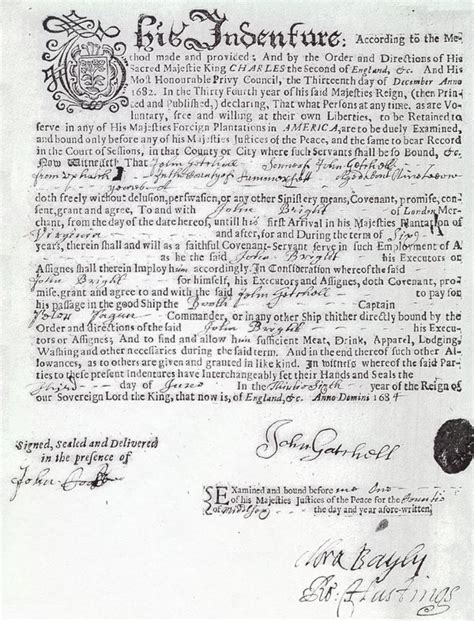 This Indenture: According to the Me-
thod made and provided; And by the Order and Directions of His
Sacred Majestie King CHARLES the Second of England, &c. And His
Most Honourable Privy Council, the Thirteenth day of December Anno
1682. In the Thirty Fourth year of his said Majesties Reign, (then Prin-
ted and Published,) declaring, That what Persons at any time, as are Vo-
luntary, free and willing at their own Liberties, to be Retained to
serve in any of His Majesties Foreign Plantations in AMERICA, are to be duely Examined,
and bound only before any of his Majesties Justices of the Peace, and the same to bear Record
in the Court of Sessions, in that County or City where such Servants shall be so Bound, &c.
Now Witnesseth That John Gatchell John Gatchell
In the County of
doth freely without delusion, perswasion, or any other Sinistery means, Covenant, promise, con-
sent, grant and agree, To and with John Bright of London Mer-
chant, from the day of the date hereof, until his first Arrival in his Majesties Plantation of
Virginia and after, for and During the term of
years, therein shall and will as a faithful Covenant-Servant serve in such Employment of A
as he the said John Bright his Executors or
Assignes shall therein Imploy him accordingly. In Consideration whereof the said
John Bright for himself, his Executors and Assignes, doth Covenant, pro-
mise, grant and agree to and with the said John Gatchell to pay for
his passage in the good Ship the Captain
Commander, or in any other Ship thither directly bound by the
Order and directions of the said John Bright his Execu-
tors or Assignes; And to find and allow him sufficient Meat, Drink, Apparel, Lodging,
Washing and other necessaries during the said term. And in the end thereof such other Al-
lowances, as to others are given and granted in like kind. In witness whereof the said Par-
ties to these present Indentures have Interchangeably set their Hands and Seals the
day of June In the Thirtie Sixth year of the Reign of
our Sovereign Lord the King, that now is, of England, &c. Anno Domini 1684
Signed, Sealed and Delivered
in the presence of
John
John Gatchell
Examined and bound before me One
of his Majesties Justices of the Peace for the Countie
of Middlesex the day and year afore-written,
Bayly
Hastings